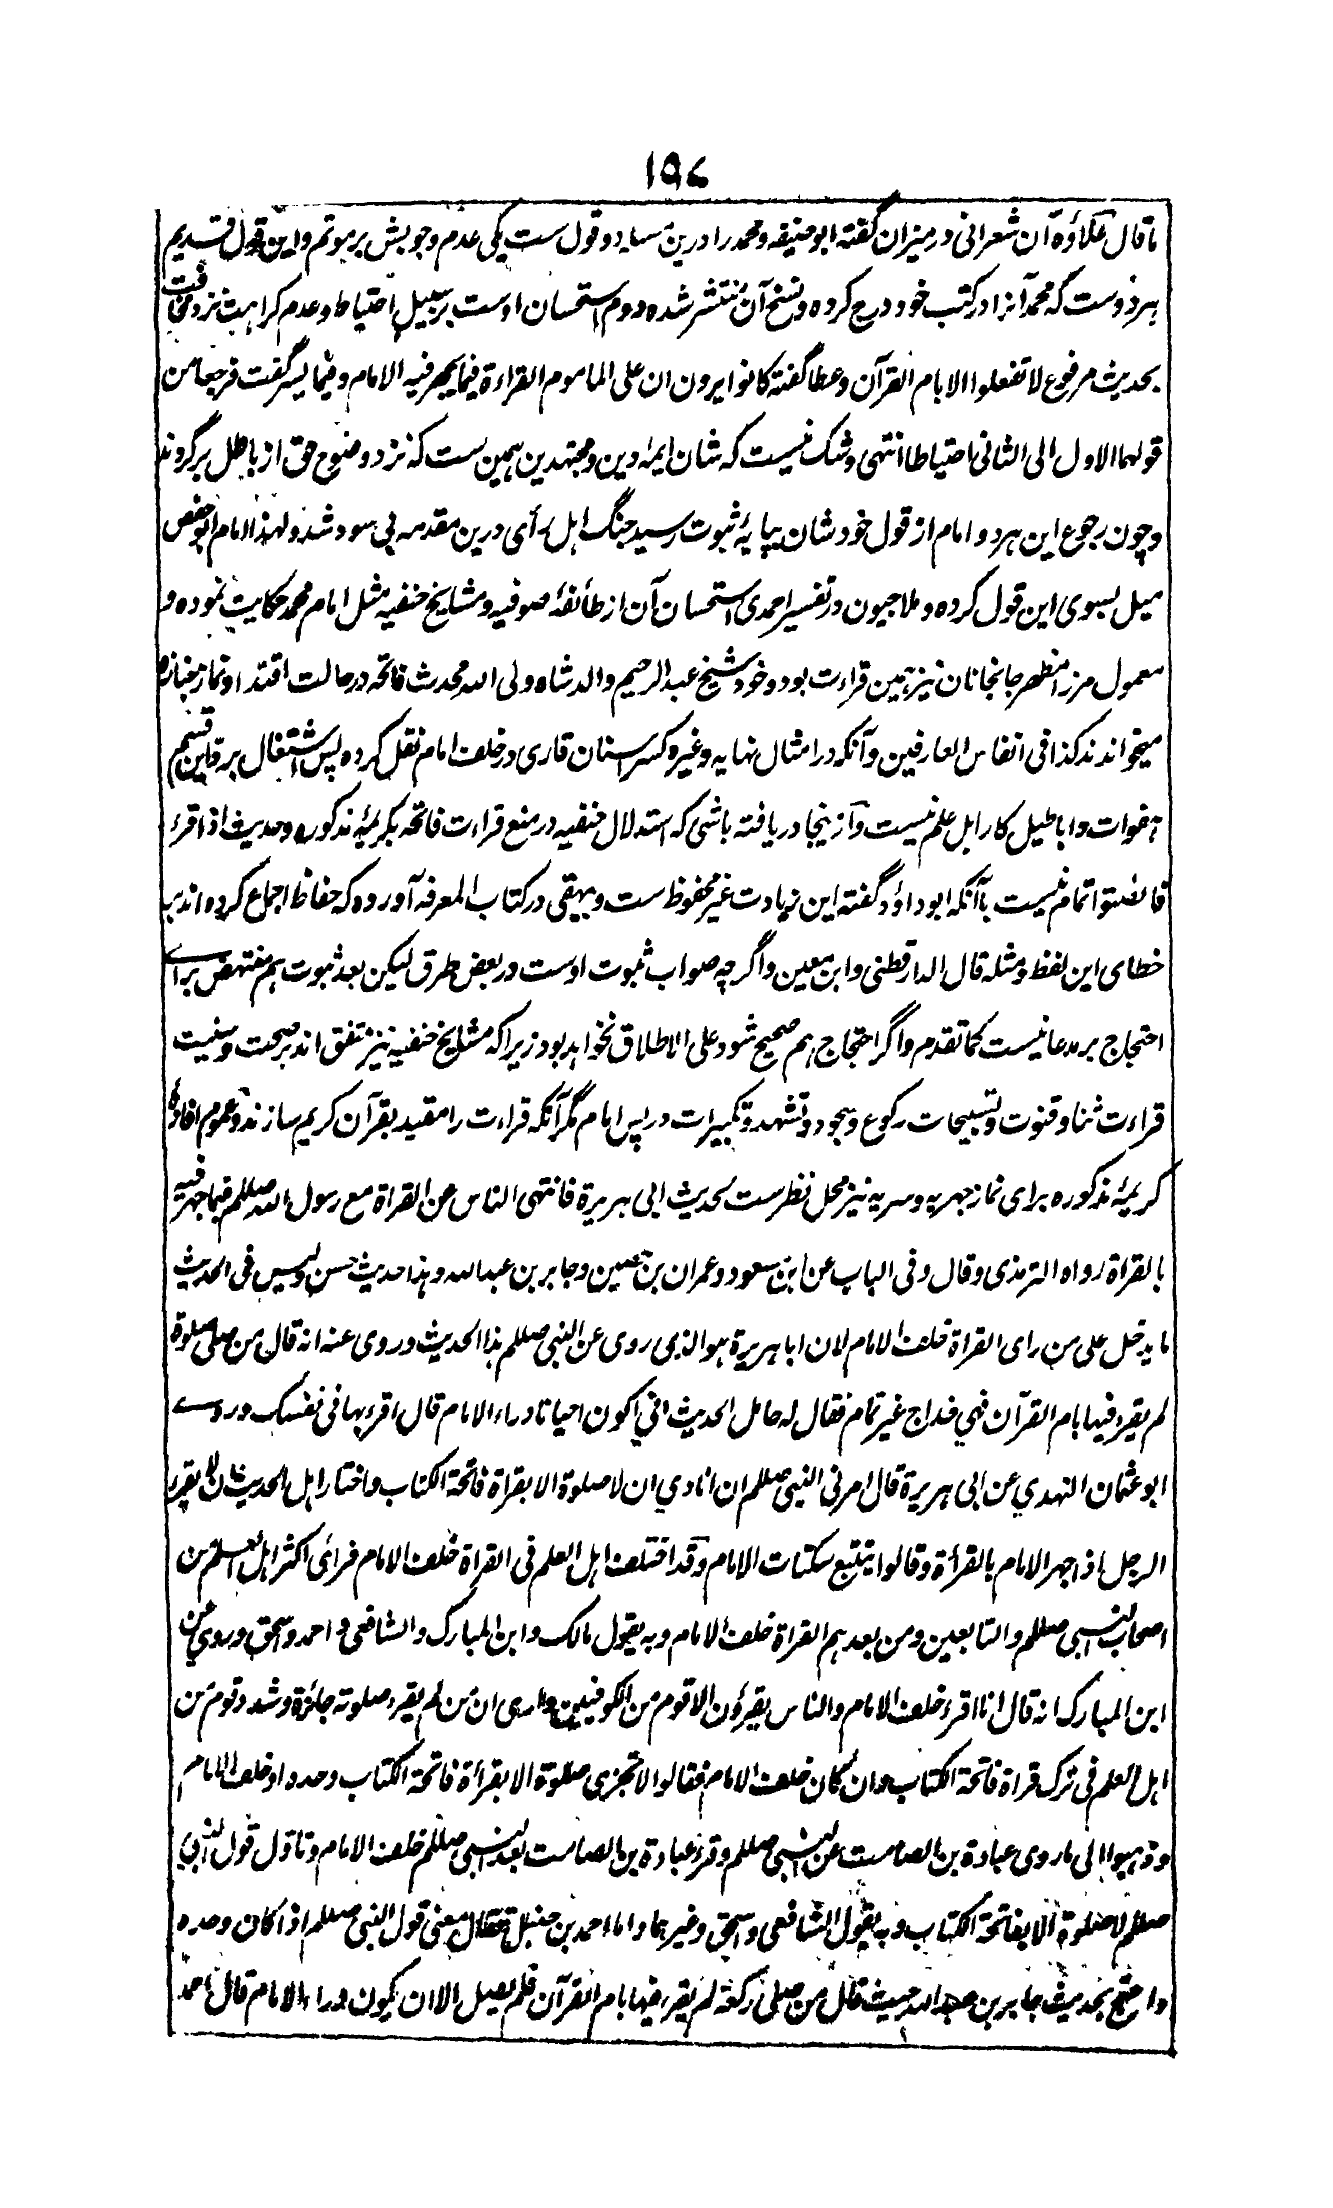 ۱۹۷
ما قال علاوه آن شعرانی در میزان گفته ابو حنیفه و محمد را درین مساله دو قول ست یکی عدم وجوبش بر موتم و این قول قدیم
هر دوست که محمد آنرا در کتب خود درج کرده و نسخ آن منتشر شده دوم استحسان اوست بر سبیل احتیاط و عدم کراهت نزد مخافتت
بحدیث مرفوع لا تفعلوا الا بام القرآن و عطا گفته کانوا یرون ان علی الماموم القراءة فیما یجهر فیه الامام و فیما یسر گفت فرجعا من
قولهما الاول الی الثانی احتیاطا انتهی و شک نیست که شان ایمه دین و مجتهدین همین ست که نزد وضوح حق از باطل برگروند
و چون رجوع این هر دو امام از قول خود شان بپایۀ ثبوت رسید جنگ اهل رأی درین مقدمه بی سود شد و لهذا امام ابو حفص
میل بسوی این قول کرده و ملا جیون در تفسیر احمدی استحسان آن از طائفۀ صوفیه و مشایخ حنفیه مثل امام محمد حکایت نموده و
معمول مرزا مظهر جانجانان نیز همین قراءت بود و خود شیخ عبد الرحیم والد شاه ولی الله محدث فاتحه در حالت اقتدا و نماز جنازه
میخواندند کذا فی انفاس العارفین و آنکه در امثال نهایه و غیره کسر اسنان قاری در خلف امام نقل کرده پس اشتغال بر قلین قسیم
هفوات و اباطیل کار اهل علم نیست و از ینجا دریافته باشی که استدلال حنفیه در منع قراءت فاتحه بکریمۀ مذکوره و حدیث اذا قرء
فانصتوا تمام نیست با آنکه ابو داؤد گفته این زیادت غیر محفوظ ست و بیهقی در کتاب المعرفه آورده که حفاظ اجماع کرده اند بر
خطای این لفظ و مثله قال الدارقطنی و ابن معین و اگرچه صواب ثبوت اوست در بعض طرق لیکن بعد ثبوت هم منتهض برای
احتجاج بر مدعا نیست کما تقدم و اگر احتجاج هم صحیح شود علی الاطلاق نخواهد بود زیرا که مشایخ حنفیه نیز متفق اند بر صحت و سنیت
قراءت ثنا و قنوت و تسبیحات رکوع و سجود و تشهد و تکبیرات در پس امام مگر آنکه قراءت را مقید بقرآن کریم سازند و عموم افادۀ
کریمۀ مذکوره برای نماز جهریه و سریه نیز محل نظر ست لحدیث ابی هریرة فانتهی الناس عن القراة مع رسول الله صللم فیما جهر فیه
بالقراة رواه الترمذی و قال و فی الباب عن ابن مسعود و عمران بن حصین و جابر بن عبد الله و هذا حدیث حسن و لیس فی الحدیث
ما یدخل علی من رای القراة خلف الامام لان ابا هریرة هو الذی روی عن النبی صللم هذا الحدیث و روی عنه انه قال من صلی صلوة
لم یقرء فیها بام القرآن فهی خداج غیر تمام فقال له حامل الحدیث انی اکون احیانا وراء الامام قال اقرء بها فی نفسک و روی
ابو عثمان النهدی عن ابی هریرة قال امرنی النبی صللم ان انادی ان لا صلوة الا بقراة فاتحة الکتاب و اختار اهل الحدیث ان لا یقرء
الرجل اذ اجهر الامام بالقرأة و قالوا یتتبع سکتات الامام و قد اختلف اهل العلم فی القراة خلف الامام فرائ اکثر اهل العلم من
اصحاب النبی صللم و التابعین و من بعدهم القراة خلف الامام و به یقول مالک و ابن المبارک و الشافعی و احمد و اسحق و روی عن
ابن المبارک انه قال انا اقرء خلف الامام و الناس یقرؤن الا قوم من الکوفیین و اری ان من لم یقرء صلوته جائزة و شدد قوم من
اهل العلم فی ترک قراة فاتحة الکتاب و ان کان خلف الامام فقالوا لا تجزی صلوة الا بقرأة فاتحة الکتاب وحده او خلف الامام
و ذهبوا الی ما روی عبادة بن الصامت عن النبی صللم و قرء عبادة بن الصامت بعد النبی صللم خلف الامام و تاول قول النبی
صللم لا صلوة الا بفاتحة الکتاب و به یقول الشافعی و اسحق و غیرهما و اما احمد بن حنبل فقال معنی قول النبی صللم اذا کان وحده
و احتج بحدیث جابر بن عبد الله حیث قال من صلی رکعة لم یقرء فیها بام القرآن فلم یصل الا ان یکون وراء الامام قال احمد